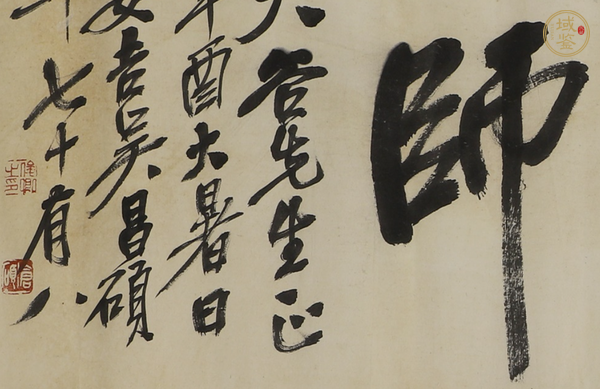 師
谷先生正
酉大暑日
安吉吳昌碩
七十有八
俊卿之印
倉碩
域鉴